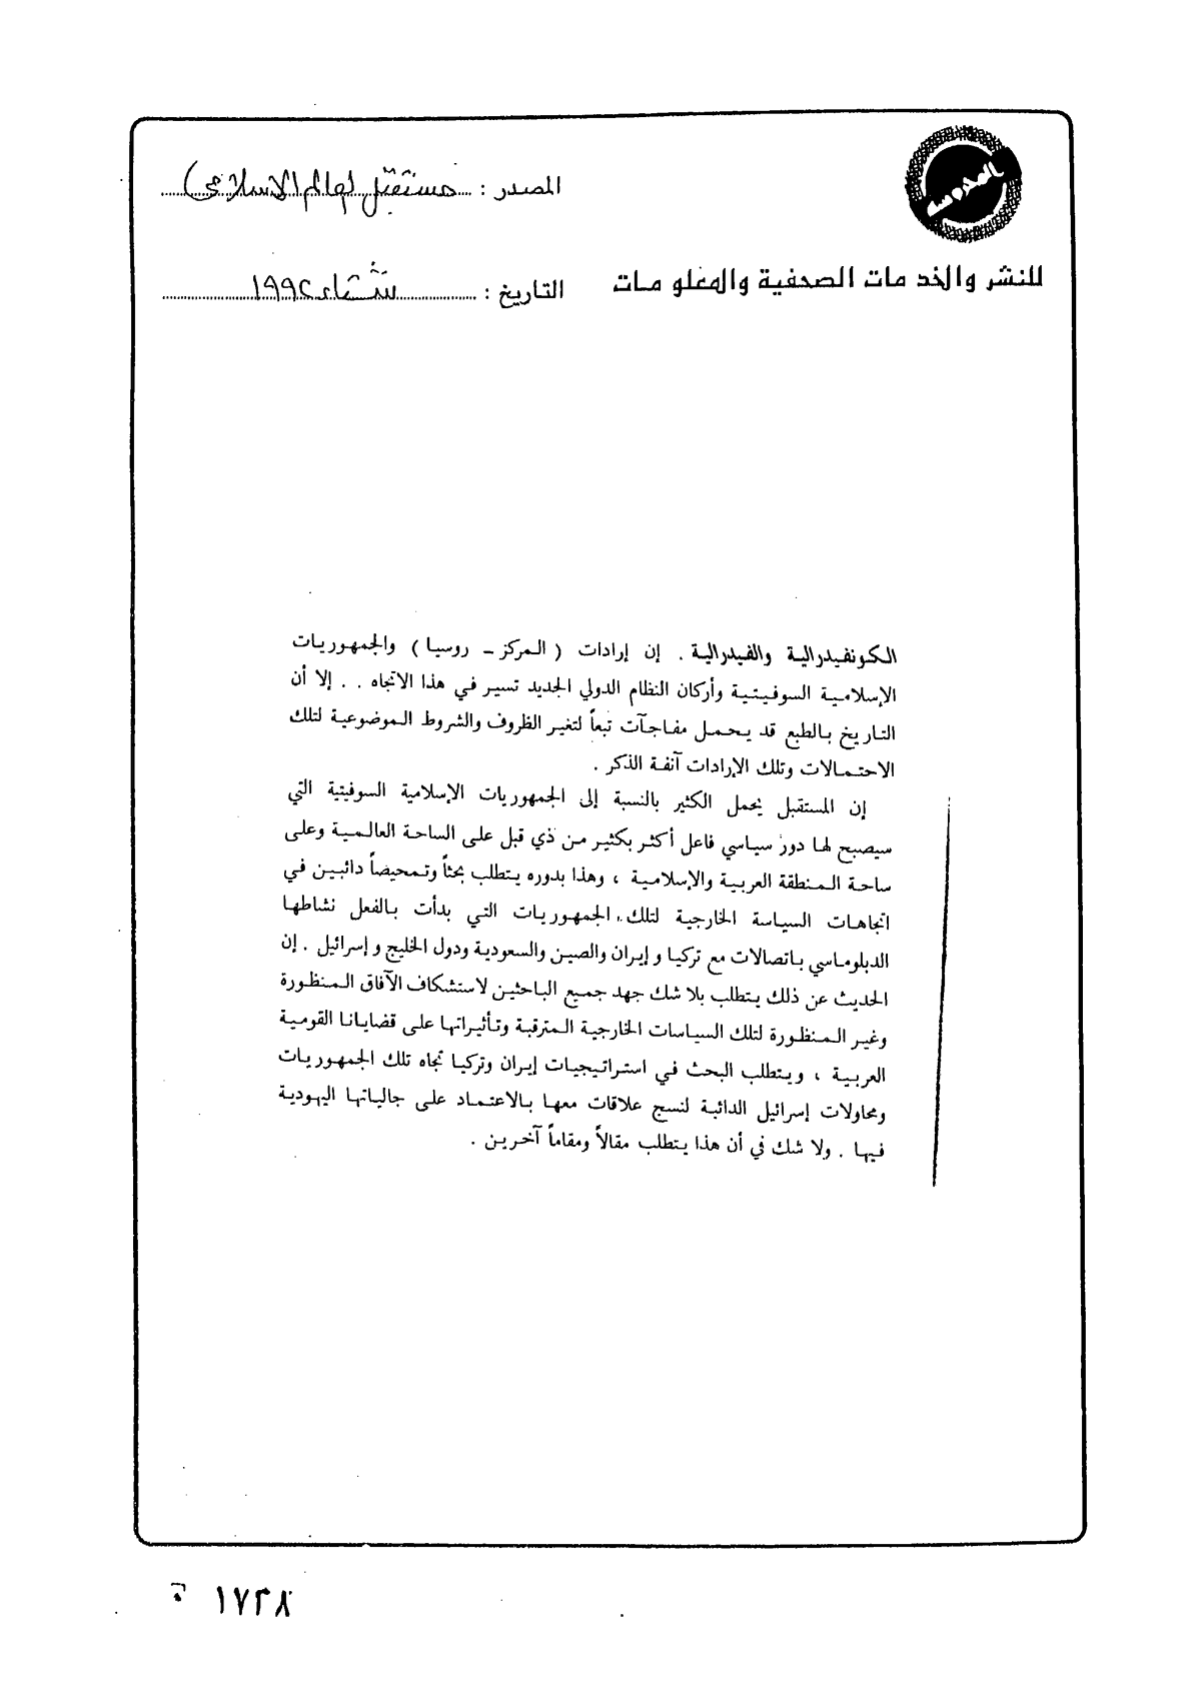 المحروسة
المصدر : مستقبل العالم الاسلامى
للنشر والخدمات الصحفية والمعلومات
التاريخ : شتاء ١٩٩٢
الكونفيدرالية والفيدرالية . إن إرادات ( المركز - روسيا ) والجمهوريات
الإسلامية السوفيتية وأركان النظام الدولي الجديد تسير في هذا الاتجاه . . إلا أن
التاريخ بالطبع قد يحمل مفاجآت تبعاً لتغير الظروف والشروط الموضوعية لتلك
الاحتمالات وتلك الإرادات آنفة الذكر .
إن المستقبل يحمل الكثير بالنسبة إلى الجمهوريات الإسلامية السوفيتية التي
سيصبح لها دور سياسي فاعل أكثر بكثير من ذي قبل على الساحة العالمية وعلى
ساحة المنطقة العربية والإسلامية ، وهذا بدوره يتطلب بحثاً وتمحيصاً دائبين في
اتجاهات السياسة الخارجية لتلك الجمهوريات التي بدأت بالفعل نشاطها
الدبلوماسي باتصالات مع تركيا وإيران والصين والسعودية ودول الخليج وإسرائيل . إن
الحديث عن ذلك يتطلب بلا شك جهد جميع الباحثين لاستشكاف الآفاق المنظورة
وغير المنظورة لتلك السياسات الخارجية المترقبة وتأثيراتها على قضايانا القومية
العربية ، ويتطلب البحث في استراتيجيات إيران وتركيا تجاه تلك الجمهوريات
ومحاولات إسرائيل الدائبة لنسج علاقات معها بالاعتماد على جالياتها اليهودية
فيها . ولا شك في أن هذا يتطلب مقالاً ومقاماً آخرين .
١٧٣٨